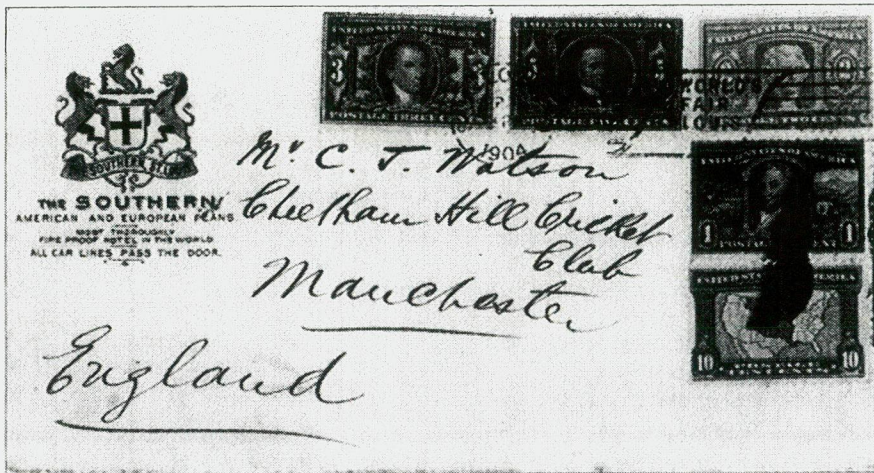 THE SOUTHERN
AMERICAN AND EUROPEAN PLANS
MOST THOROUGHLY
FIRE PROOF HOTEL IN THE WORLD
ALL CAR LINES PASS THE DOOR.
3 3
5 5
2 2
WORLD'S
FAIR
LOUIS
1904
1 1
10 10
Mr C. J. Watson
Cheetham Hill Cricket
Club
Manchester
England